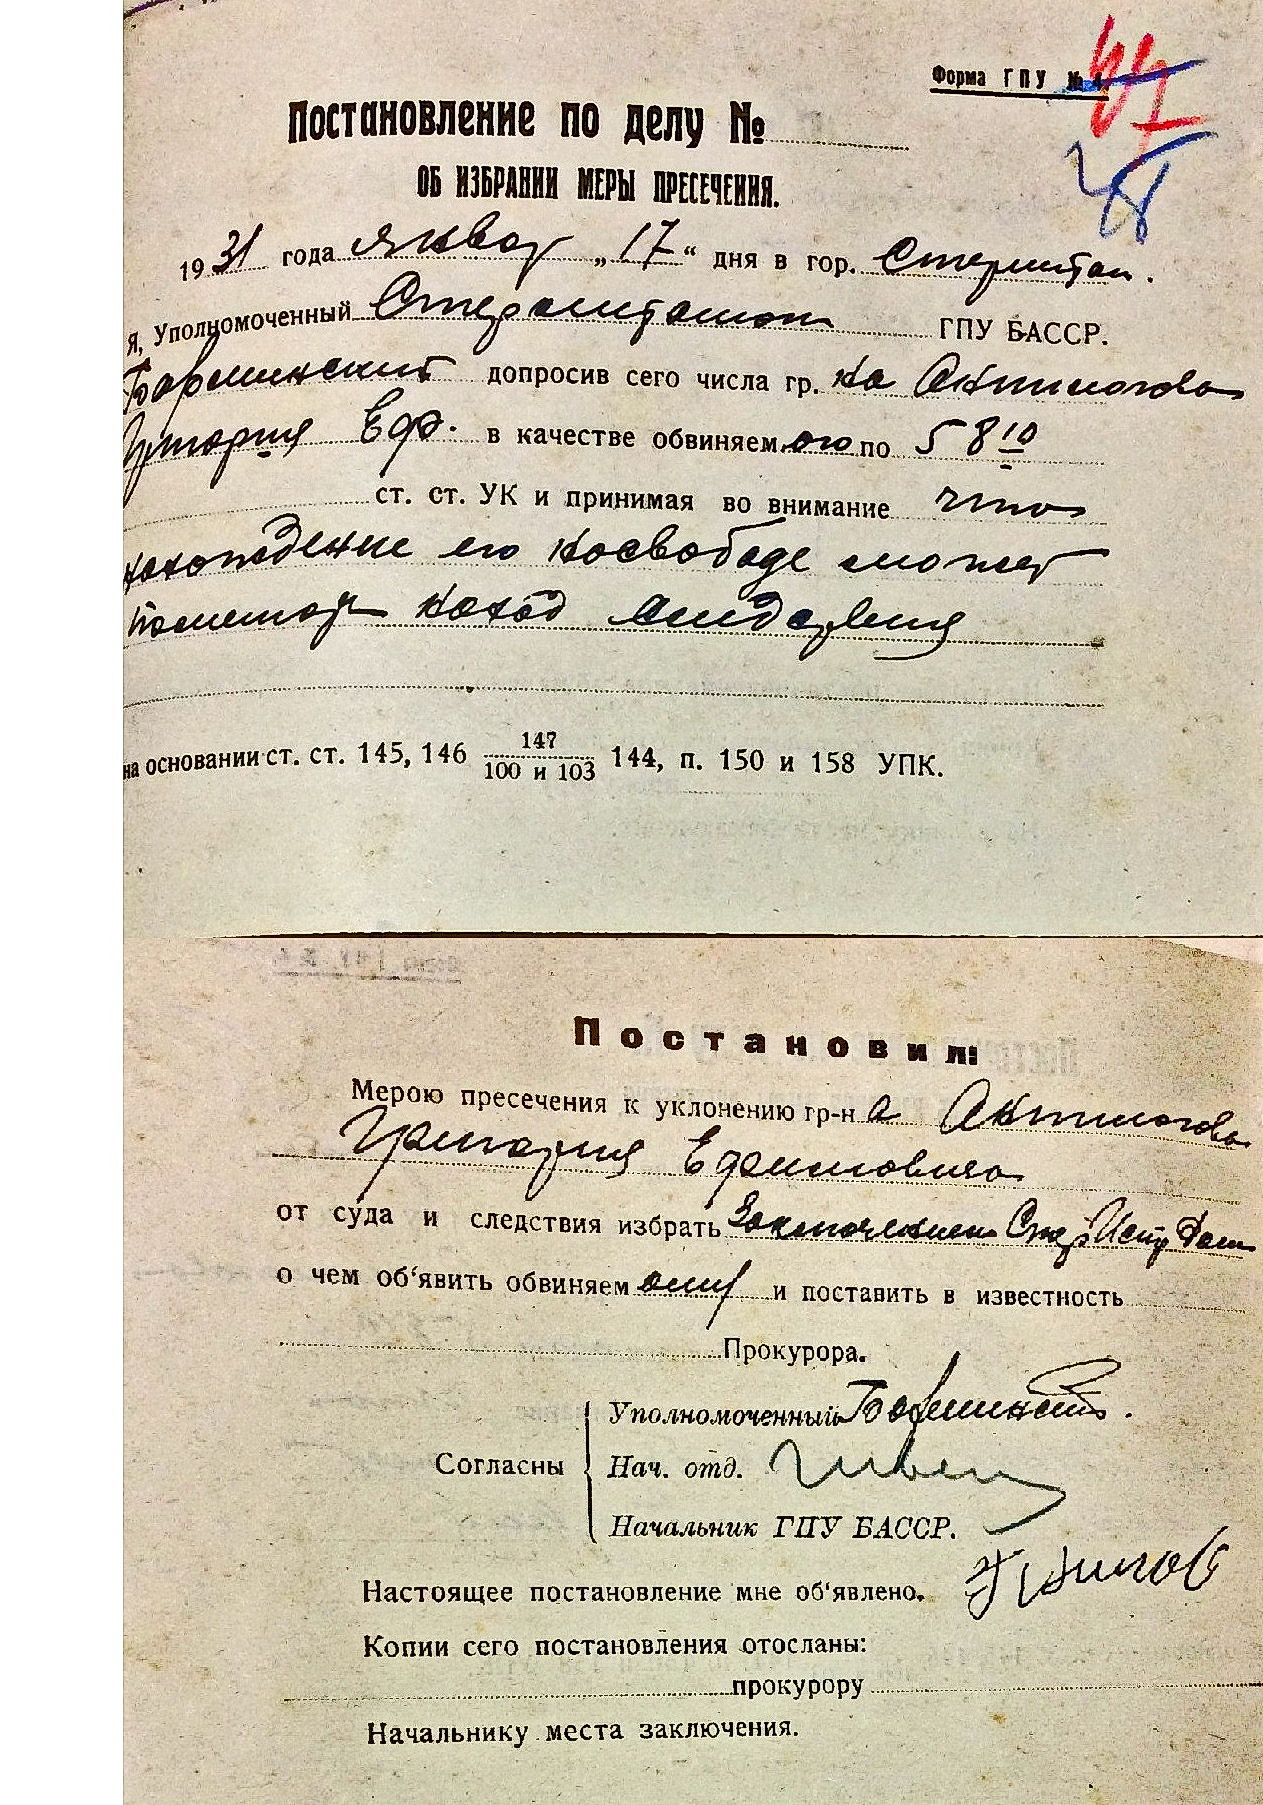 Форма ГПУ № 4
44
Постановление по делу №
ОБ ИЗБРАНИИ МЕРЫ ПРЕСЕЧЕНИЯ.
1931 года январ „17“ дня в гор. Стерлитам.
Я, Уполномоченный ГПУ БАССР.
Барминский допросив сего числа гр. на Актилогова
Григория Еф. в качестве обвиняемого по 58 10
ст. ст. УК и принимая во внимание что
нахождение его на свободе может
на ход следствия
на основании ст. ст. 145, 146 147/100 и 103 144, п. 150 и 158 УПК.
Постановил:
Мерою пресечения к уклонению гр-на
Григория Ефимовича
от суда и следствия избрать Заключение Стер. Испр Дом
о чем об‘явить обвиняемому и поставить в известность
Прокурора.
Согласны
Уполномоченный Барминский.
Нач. отд.
Начальник ГПУ БАССР.
Настоящее постановление мне об‘явлено.
Копии сего постановления отосланы:
прокурору
Начальнику места заключения.